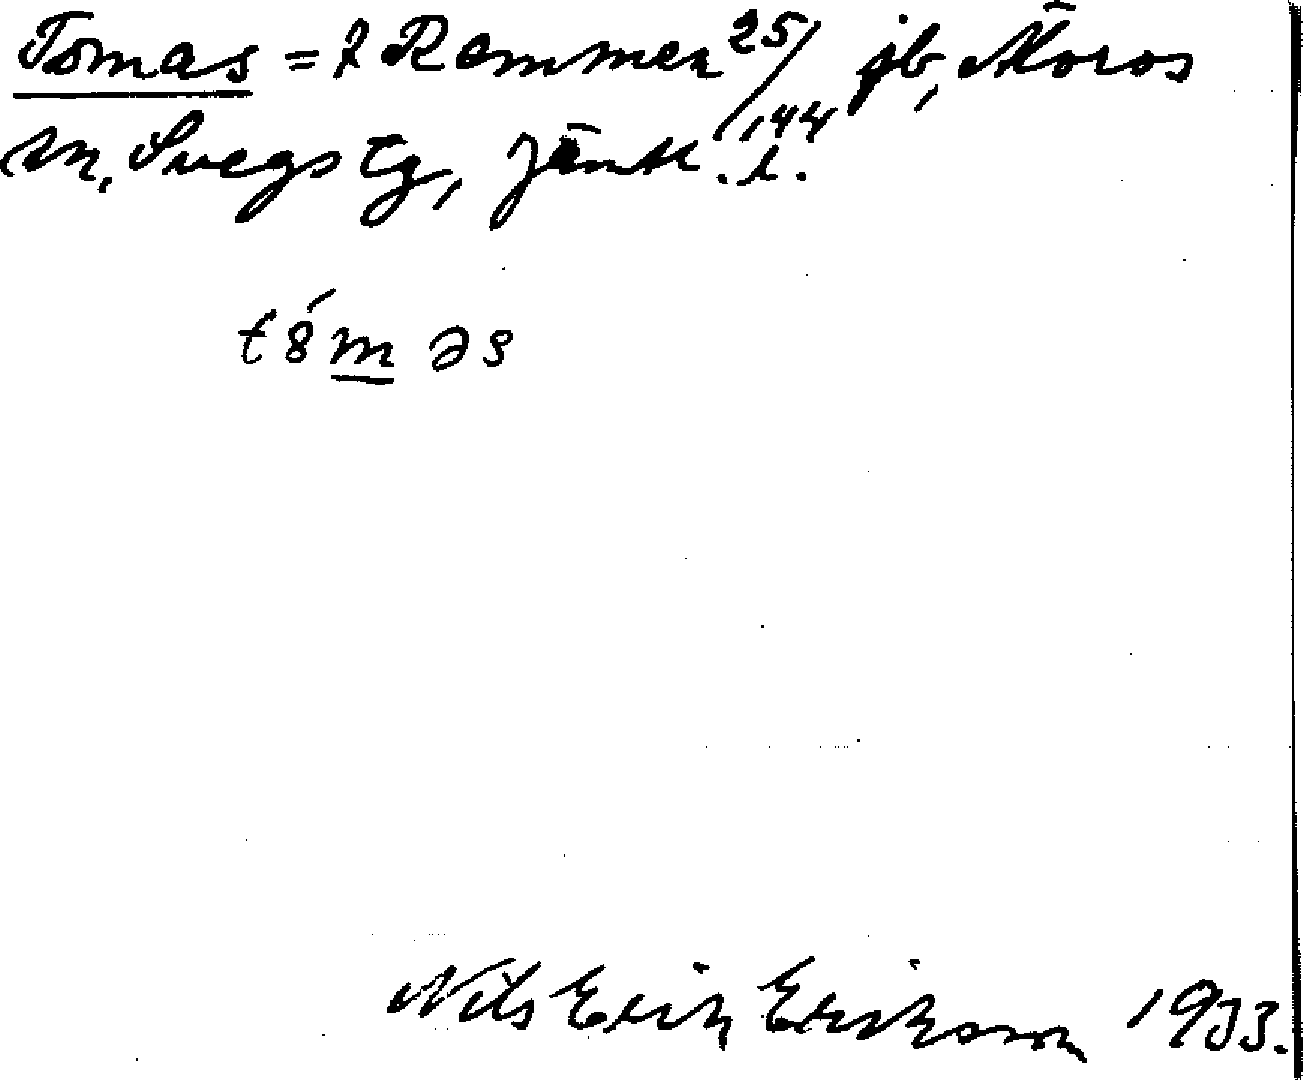 Tomas = 2 Remmen 25/144 jb, Äloros
sn, Svegs tg, Jämtl. l.
t8́m əs
Nils Erik Erikson 1933.